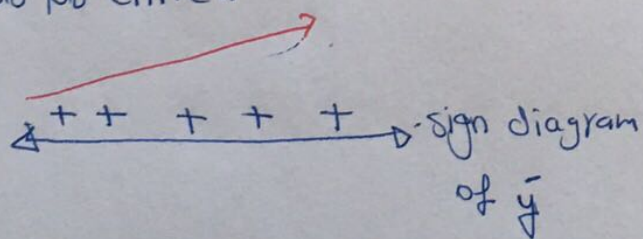 + + + + +
sign diagram
of ȳ